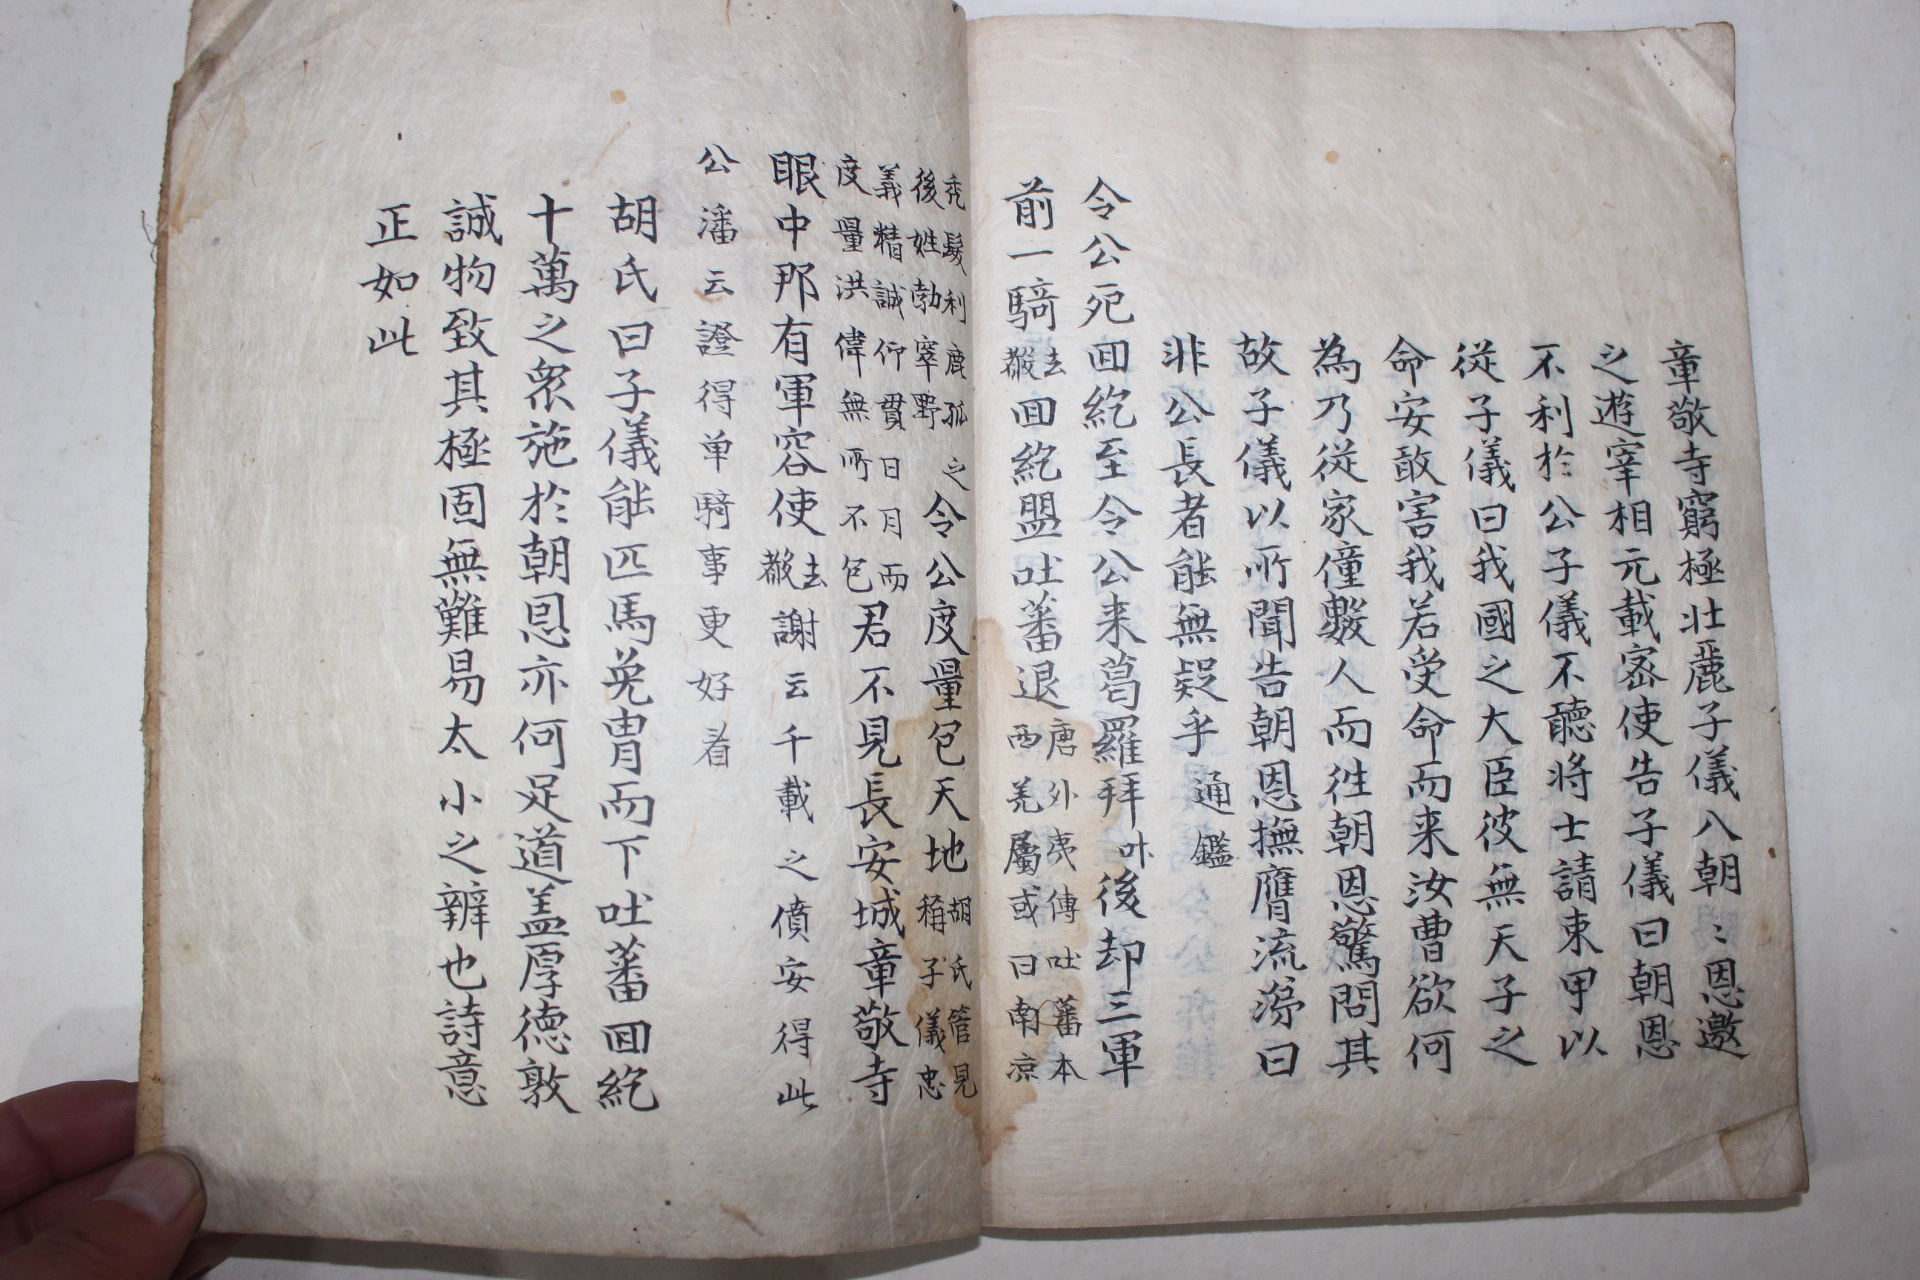 章敬寺窮極壯麗子儀入朝〻恩邀
之遊宰相元載密使告子儀曰朝恩
不利於公子儀不聽將士請束甲以
從子儀曰我國之大臣彼無天子之
命安敢害我若受命而来汝曹欲何
為乃從家僮數人而徃朝恩驚問其
故子儀以所聞告朝恩撫膺流涕曰
非公長者能無疑乎 通鑑
令公死回紇至令公来葛羅拜 叶 後却三軍
前一騎 去聲 回紇盟吐蕃退 唐外夷傳吐蕃本
西羌屬或曰南凉
禿髮利鹿孤之
後姓勃窣野 令公度量包天地 胡氏管見
稱子儀忠
義精誠行貫日月而
度量洪偉無所不包 君不見長安城章敬寺
眼中那有軍容使 去聲 謝云千載之僨安得此
公潘云證得单騎事更好看
胡氏曰子儀能匹馬免冑而下吐蕃回紇
十萬之衆施於朝恩亦何足道盖厚德敦
誠物致其極固無難易太小之辨也詩意
正如此